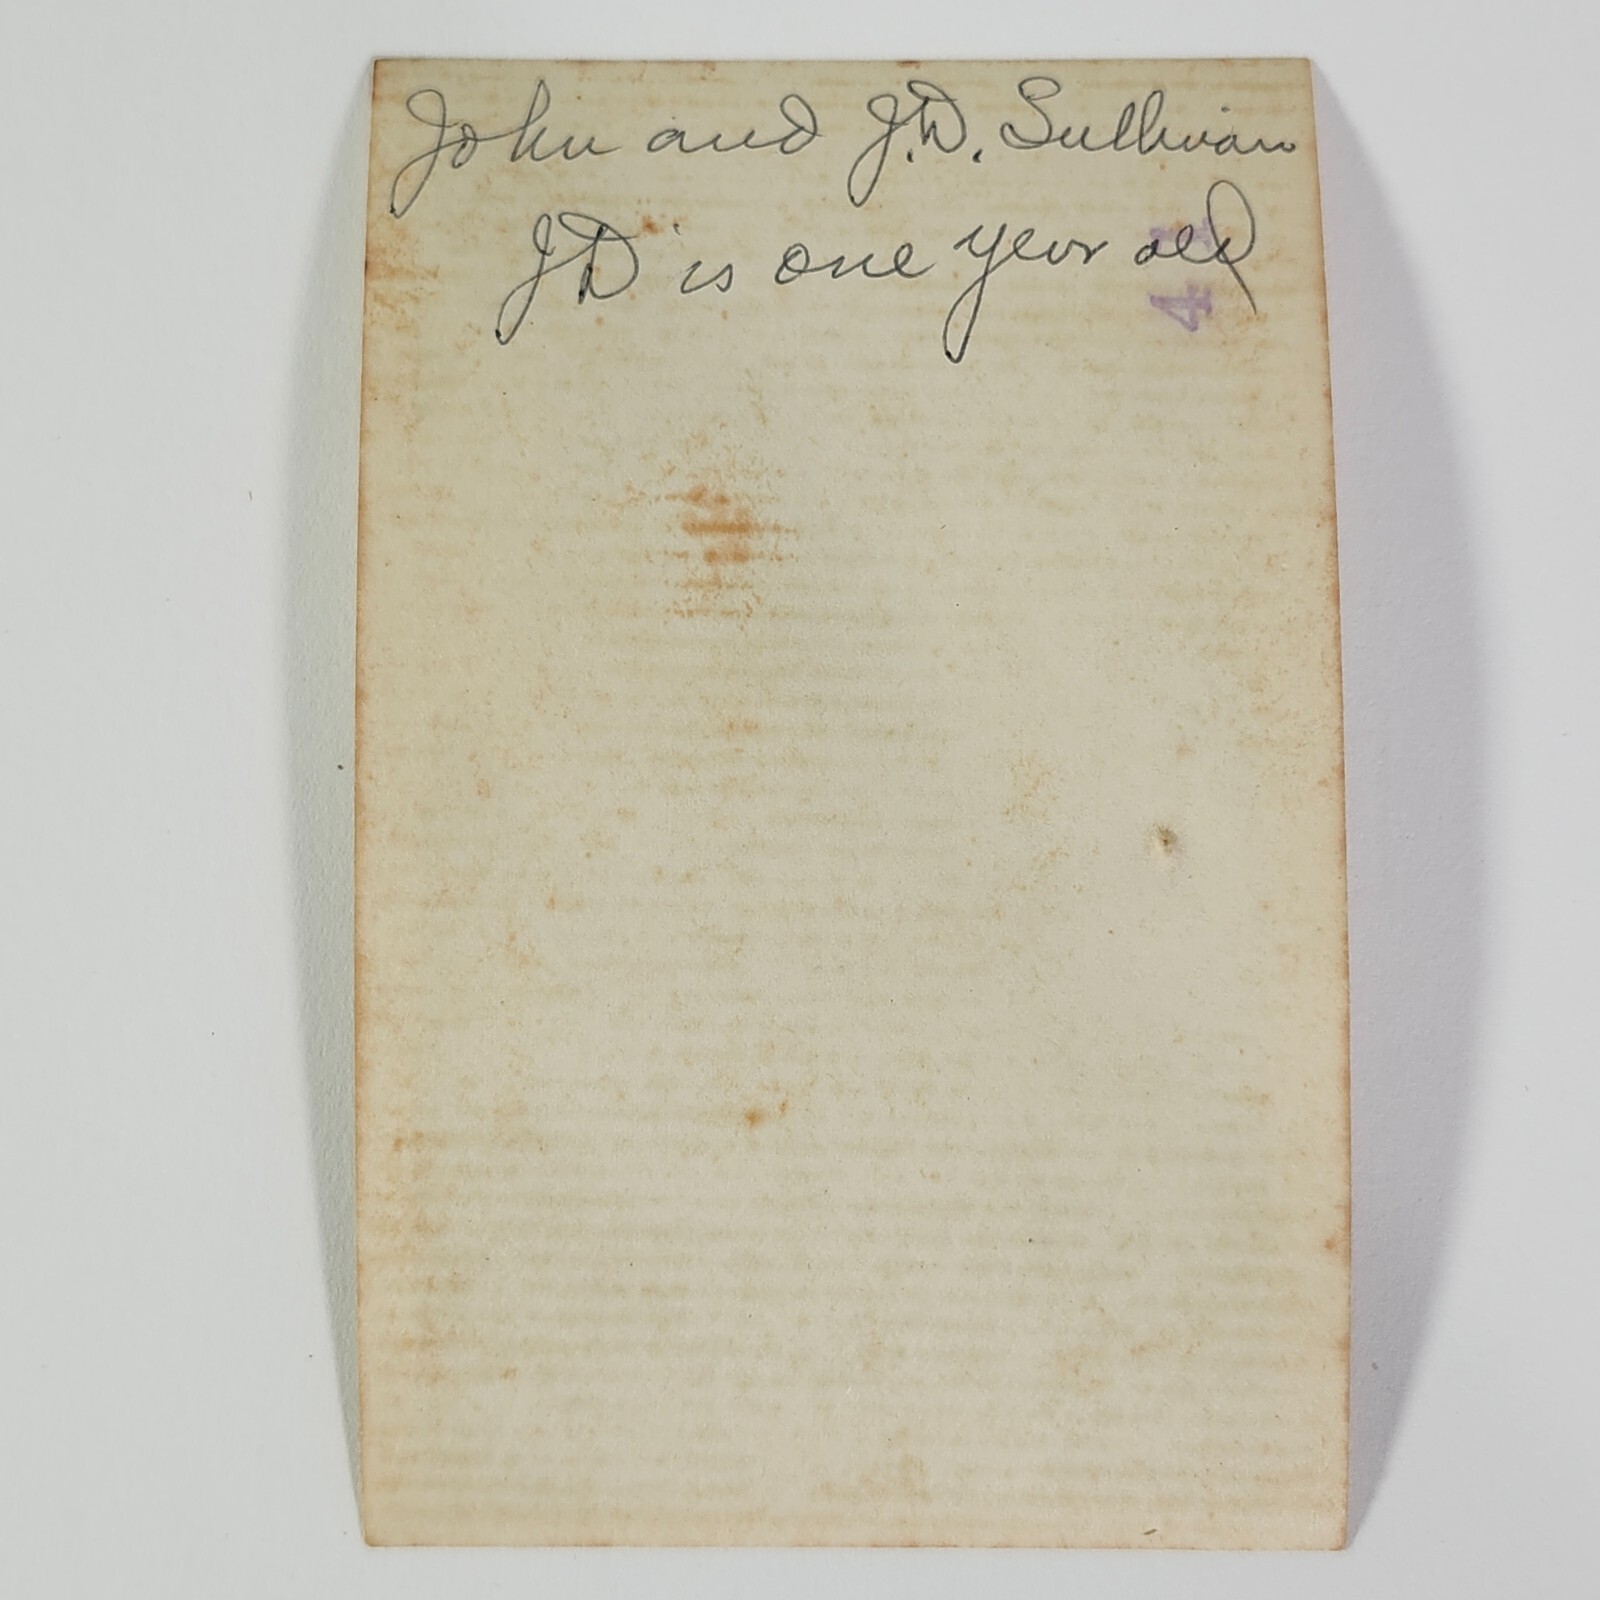 John and J.D. Sullivan
JD is one year old
4